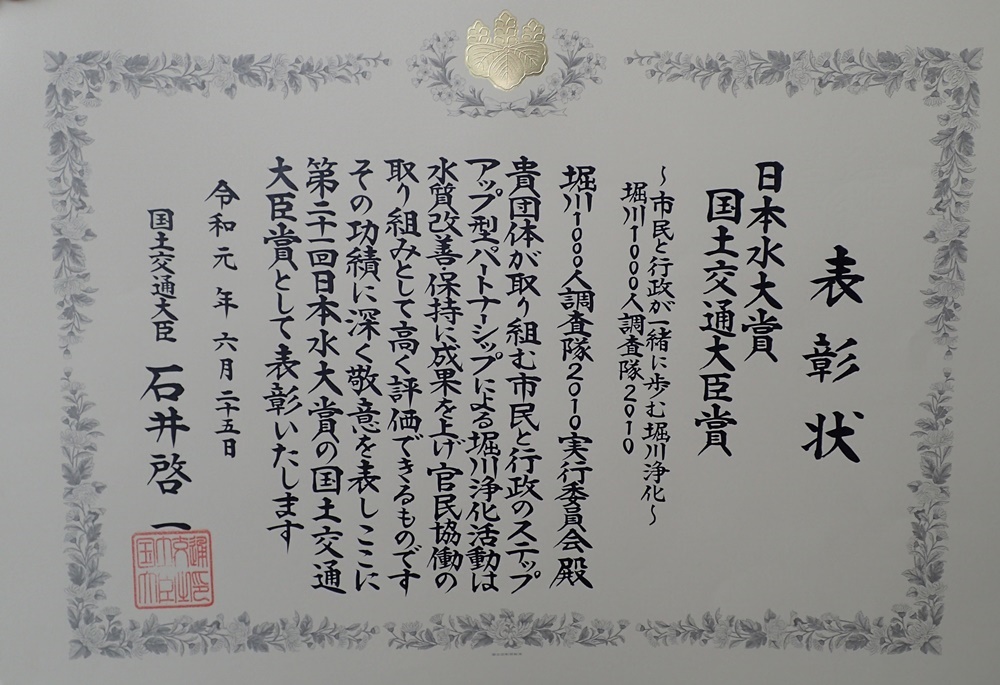 表彰状
日本水大賞
国土交通大臣賞
～市民と行政が一緒に歩む堀川浄化～
堀川1000人調査隊2010
堀川1000人調査隊2010実行委員会殿
貴団体が取り組む市民と行政のステップ
アップ型パートナーシップによる堀川浄化活動は
水質改善・保持に成果を上げ官民協働の
取り組みとして高く評価できるものです
その功績に深く敬意を表しここに
第二十一回日本水大賞の国土交通
大臣賞として表彰いたします
令和元年六月二十五日
国土交通大臣 石井啓一
国土交通大臣之印